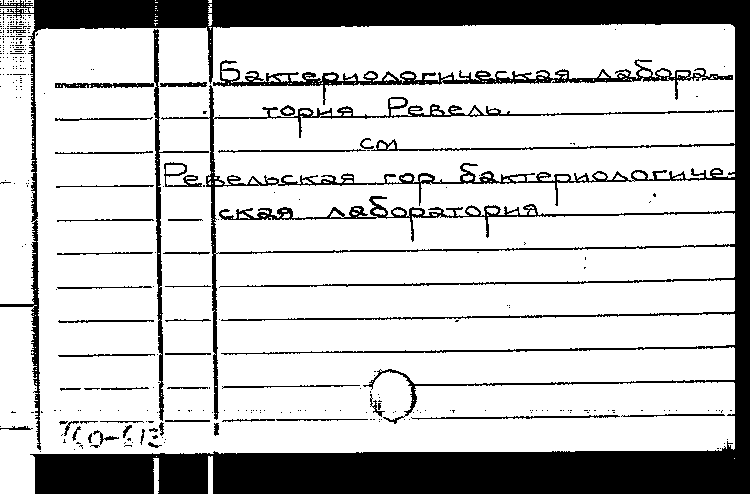 Бактериологическая лабора-
тория, Ревель.
см
Ревельская гор. бактериологиче-
ская лаборатория